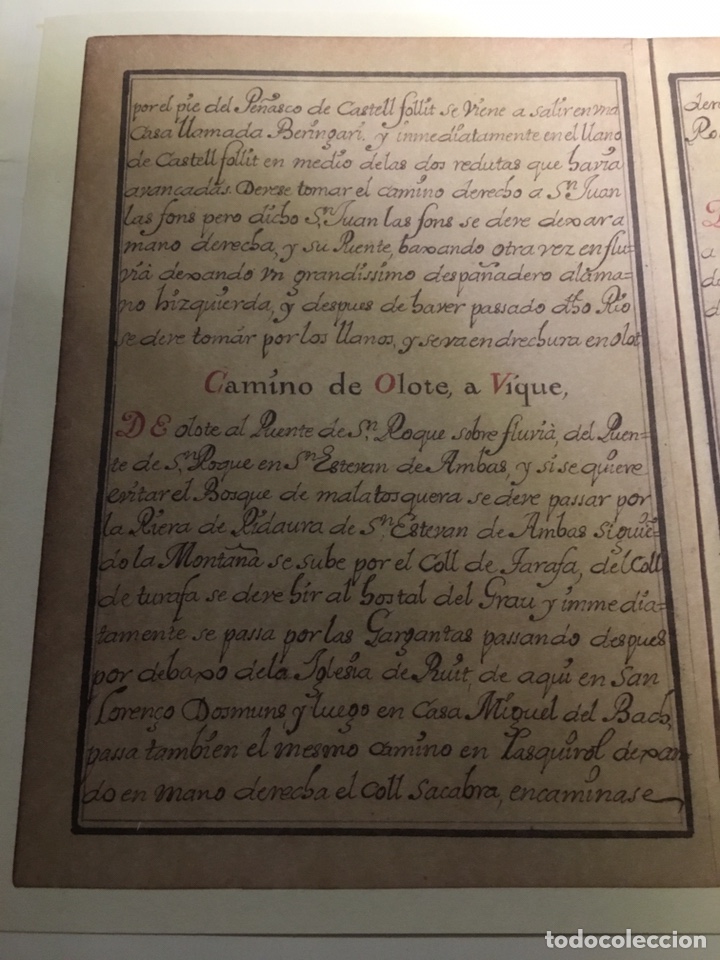 por el pie del Peñasco de Castell follit se viene a salir en vna
Casa llamada Beringari. y immediatamente en el llano
de Castell follit en medio delas dos redutas que havia
avançadas. Devese tomar el camino derecho a Sn. Juan
las fons pero dicho Sn. Juan las fons se deve dexar a
mano derecha, y su Puente, baxando otra vez en flu=
vià dexando vn grandissimo despañadero alama=
no hizquierda, y despues de haver passado dho Rio
se deve tomar por los llanos, y se va en drechura en olot
Camino de Olote, a Vique,
DE olote al Puente de Sn. Roque sobre fluvià, del Puen=
te de Sn. Roque en Sn. Estevan de Ambas, y si se quiere
evitar el Bosque de malatosquera se deve passar por
la Riera de Ridaura de Sn. Estevan de Ambas siguiē=
do la Montaña se sube por el Coll de Jarafa, del Coll
de turafa se deve hir al hostal del Grau y immedia=
tamente se passa por las Gargantas passando despues
por debaxo dela Iglesia de Ruit, de aqui en San
Lorenço Dosmuns y luego en Casa Miguel del Bach,
passa tambien el mesmo camino en Lasquirol dexan=
do en mano derecha el Coll Sacabra, encaminase
Ro
D
a
todocoleccion